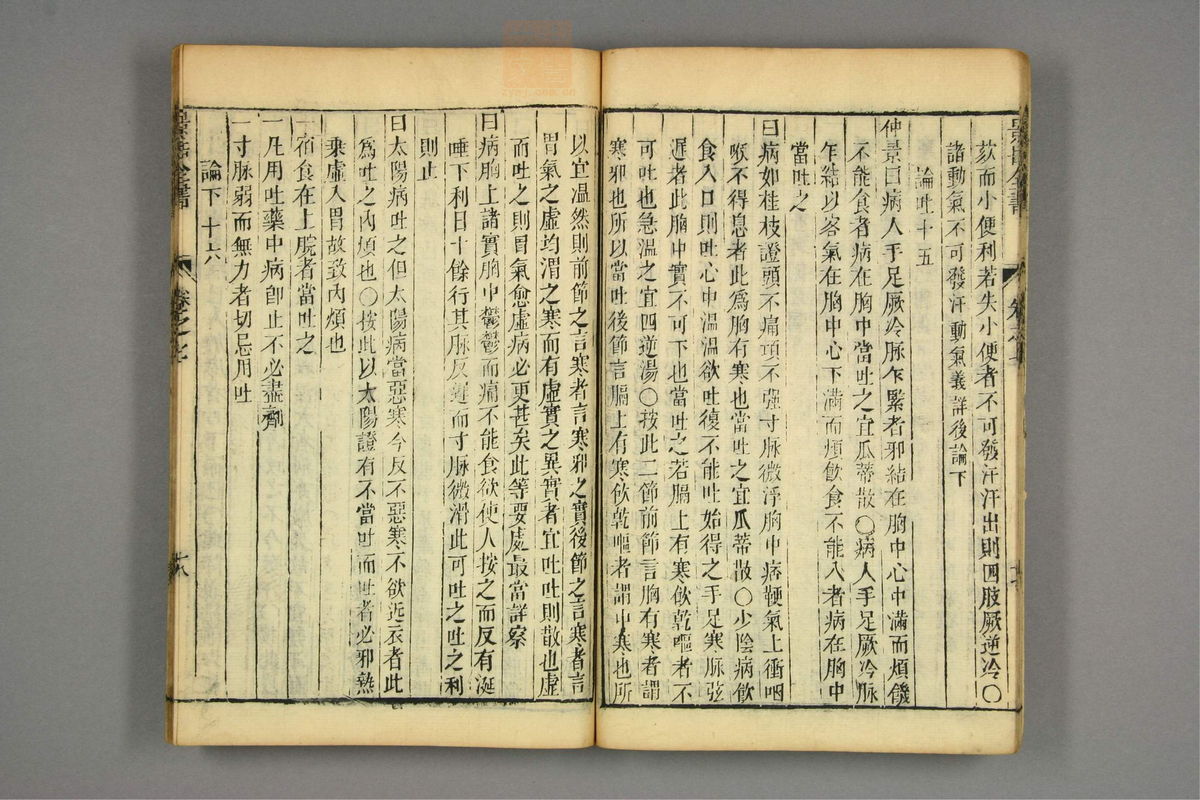 欬而小便利若失小便者不可發汗汗出則四肢厥逆冷○
諸動氣不可發汗動氣義詳後論下
論吐十五
仲景曰病人手足厥冷脉乍緊者邪結在胸中心中滿而煩饑
不能食者病在胸中當吐之宜瓜蒂散○病人手足厥冷脉
乍結以客氣在胸中心下滿而煩飲食不能入者病在胸中
當吐之
曰病如桂枝證頭不痛項不强寸脉微浮胸中痞鞕氣上衝咽
喉不得息者此爲胸有寒也當吐之宜瓜蒂散○少陰病飲
食入口則吐心中溫溫欲吐復不能吐始得之手足寒脉弦
遲者此胸中實不可下也當吐之若膈上有寒飲乾嘔者不
可吐也急溫之宜四逆湯○按此二節前節言胸有寒者謂
寒邪也所以當吐後節言膈上有寒飲乾嘔者謂中寒也所
以宜溫然則前節之言寒者言寒邪之實後節之言寒者言
胃氣之虛均謂之寒而有虛實之異實者宜吐吐則散也虛
而吐之則胃氣愈虛病必更甚矣此等要處最當詳察
曰病胸上諸實胸中鬱鬱而痛不能食欲使人按之而反有涎
唾下利日十餘行其脉反遲而寸脉微滑此可吐之吐之利
則止
曰太陽病吐之但太陽病當惡寒今反不惡寒不欲近衣者此
爲吐之內煩也○按此以太陽證有不當吐而吐者必邪熱
乘虛入胃故致內煩也
一宿食在上脘者當吐之
一凡用吐藥中病卽止不必盡劑
一寸脉弱而無力者切忌用吐
論下十六
景岳全書
卷之七
十八